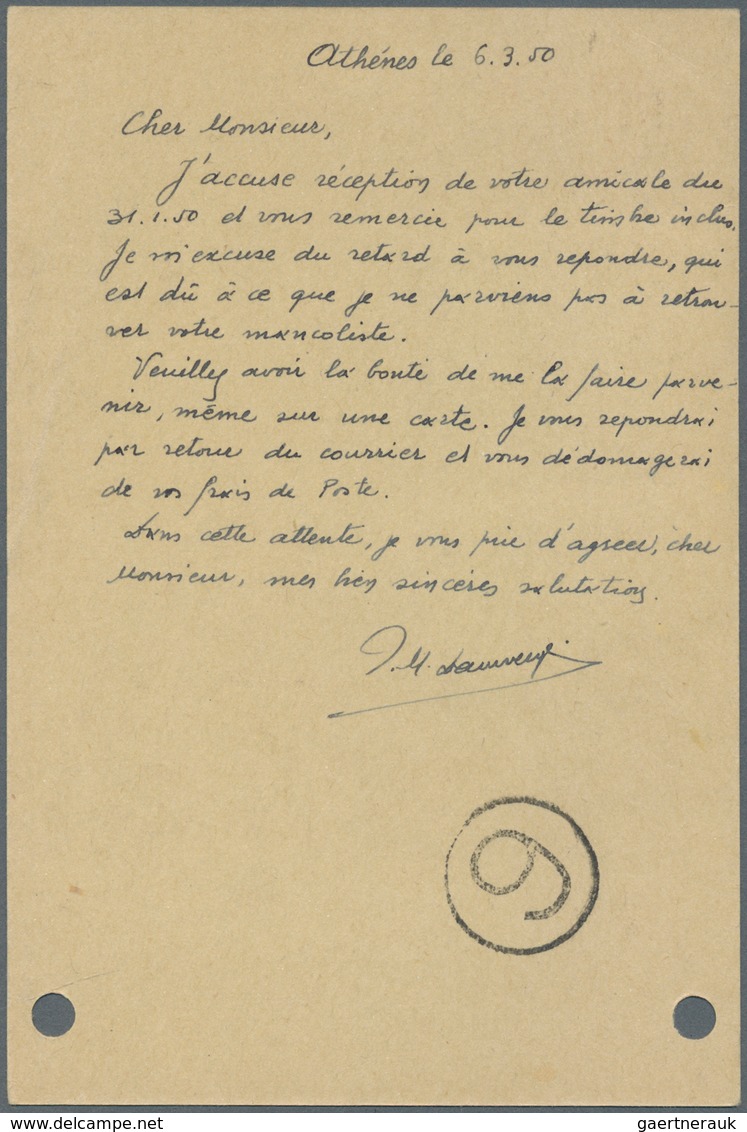 Athénes le 6.3.50
Cher Monsieur,
J'accuse réception de votre amicale du
31.1.50 et vous remercie pour le timbre inclus.
Je m'excuse du retard à vous repondre, qui
est dû à ce que je ne parviens pas à retrou-
ver votre mancoliste.
Veuillez avoir la bonté de me la faire parve-
nir, même sur une carte. Je vous repondrai
par retour du courrier et vous dédomagerai
de vos frais de Poste.
Dans cette attente, je vous prie d'agreer, cher
Monsieur, mes bien sincéres salutations.
9
gaertnerauk gaertnerauk